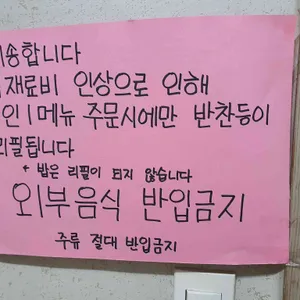 송합니다
재료비 인상으로 인해
인 1메뉴 주문시에만 반찬등이
리필됩니다
+ 밥은 리필이 되지 않습니다
외부음식 반입금지
주류 절대 반입금지